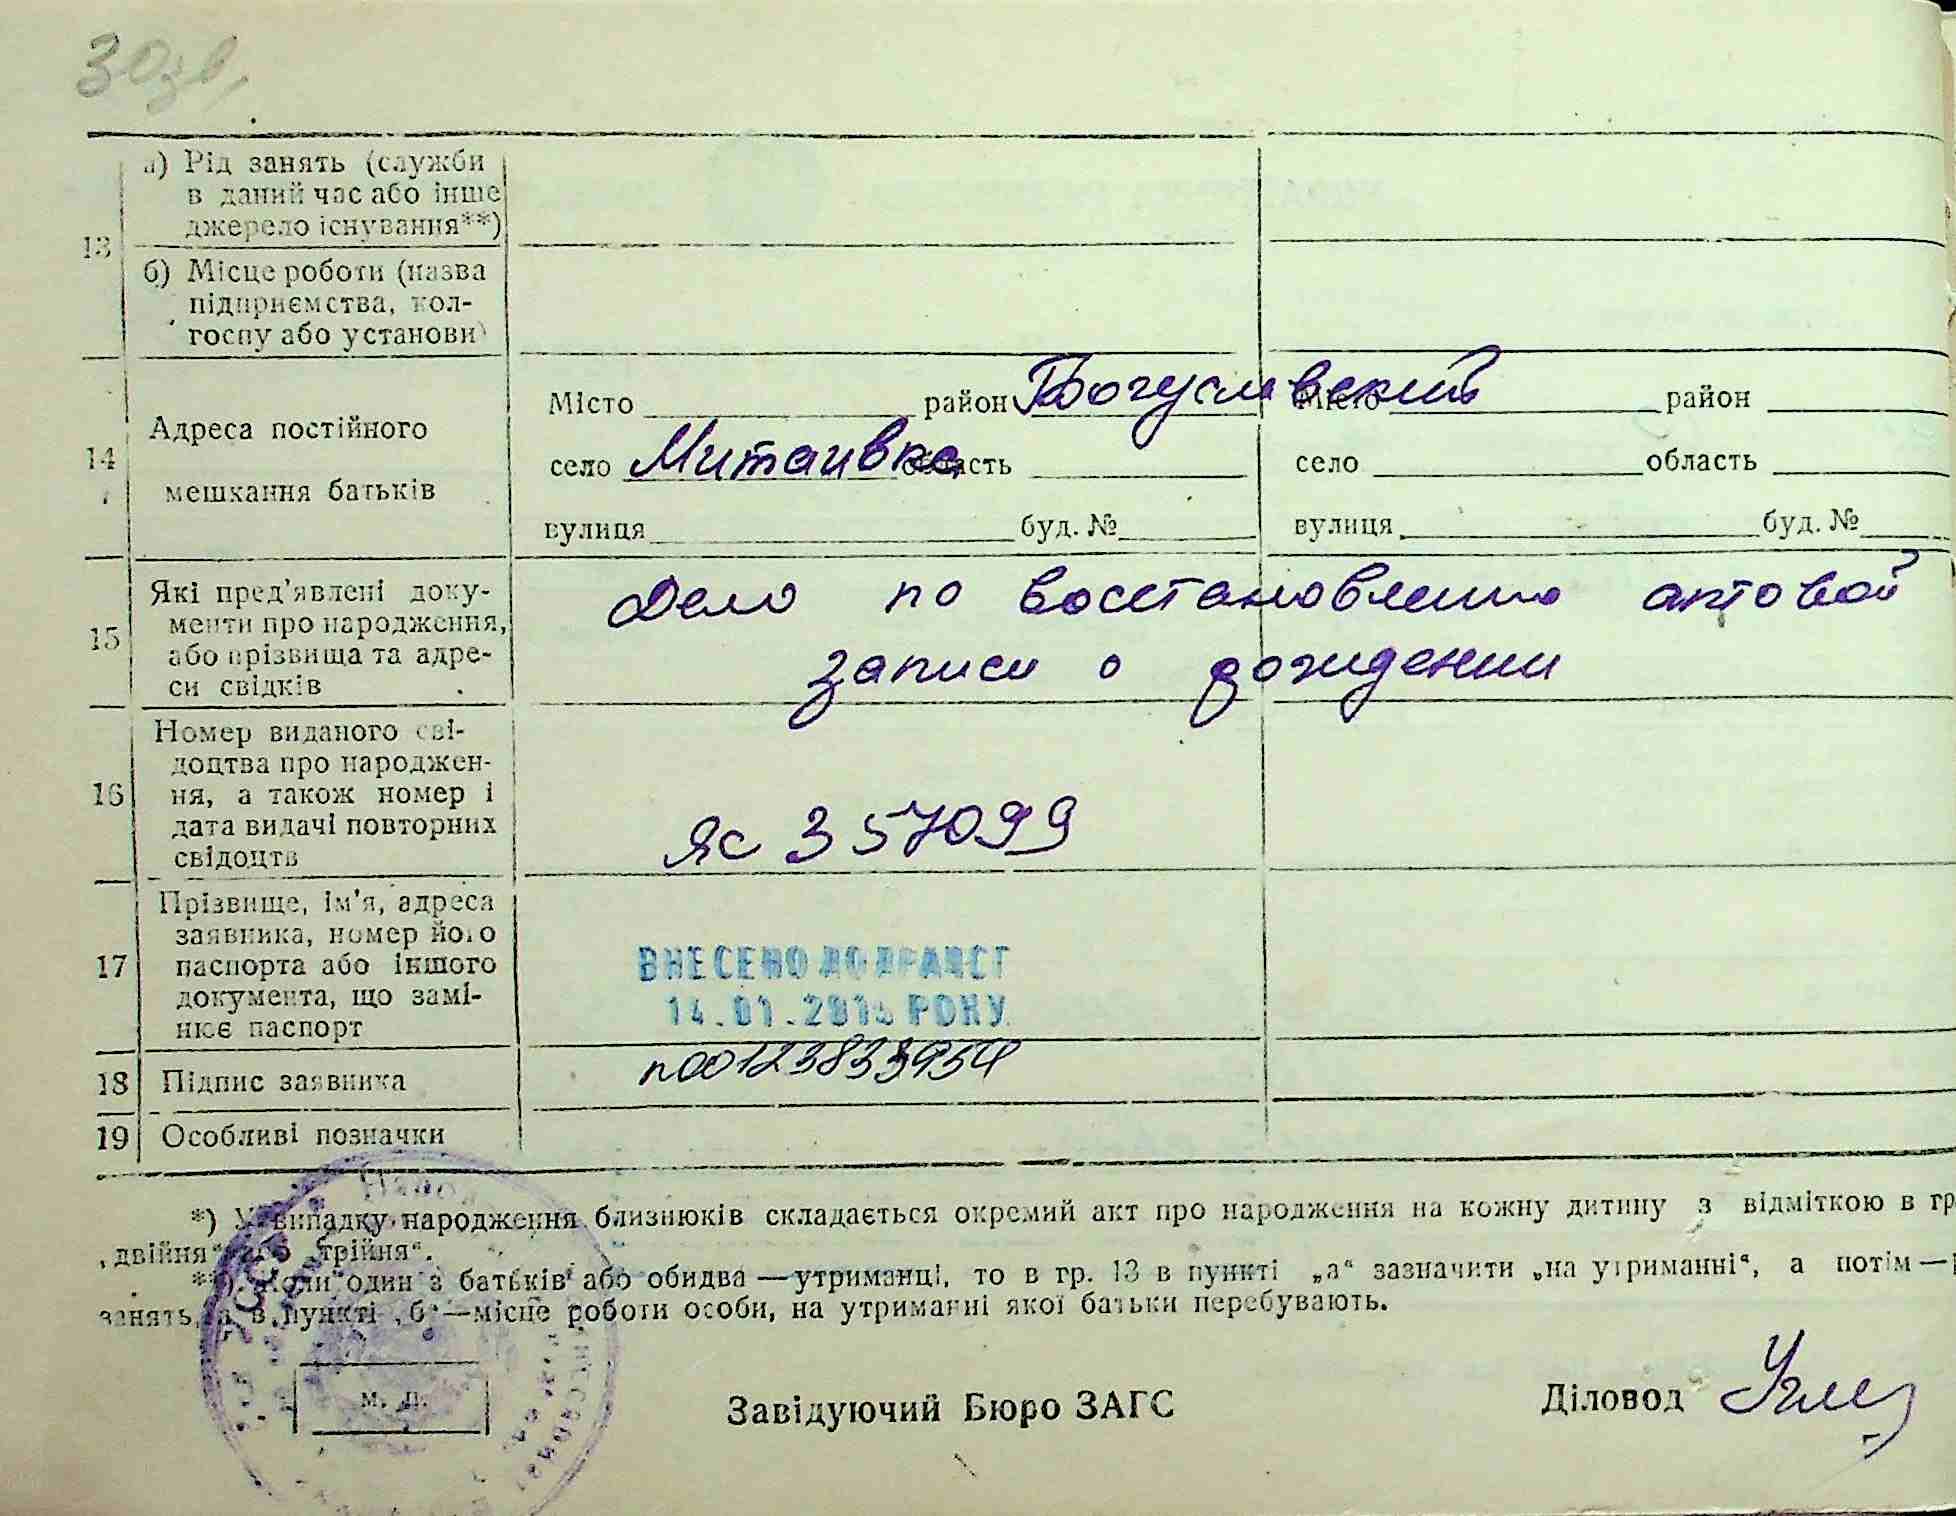 30зв.
13
а) Рід занять (служби
в даний час або інше
джерело існування**)
б) Місце роботи (назва
підприємства, кол-
госпу або установи)
14
Адреса постійного
мешкання батьків
Місто район Богуславский Місто район
село Митаивка область село область
вулиця буд. № вулиця буд. №
15
Які пред'явлені доку-
менти про народження,
або прізвища та адре-
си свідків
Дело по восстановлению актовой
записи о рождении
16
Номер виданого сві-
доцтва про народжен-
ня, а також номер і
дата видачі повторних
свідоцтв
Яс 357099
17
Прізвище, ім'я, адреса
заявника, номер його
паспорта або іншого
документа, що замі-
нює паспорт
ВНЕСЕНО ДО ДРАЦСГ
14.01.2015 РОКУ
18 Підпис заявника
19 Особливі позначки
*) У випадку народження близнюків складається окремий акт про народження на кожну дитину з відміткою в гр
„двійня“ або „трійня“.
**) Коли один з батьків або обидва — утриманці, то в гр. 13 в пункті „а“ зазначити „на утриманні“, а потім —
занять, а в пункті „б“ — місце роботи особи, на утриманні якої батьки перебувають.
М. П.
Завідуючий Бюро ЗАГС
Діловод